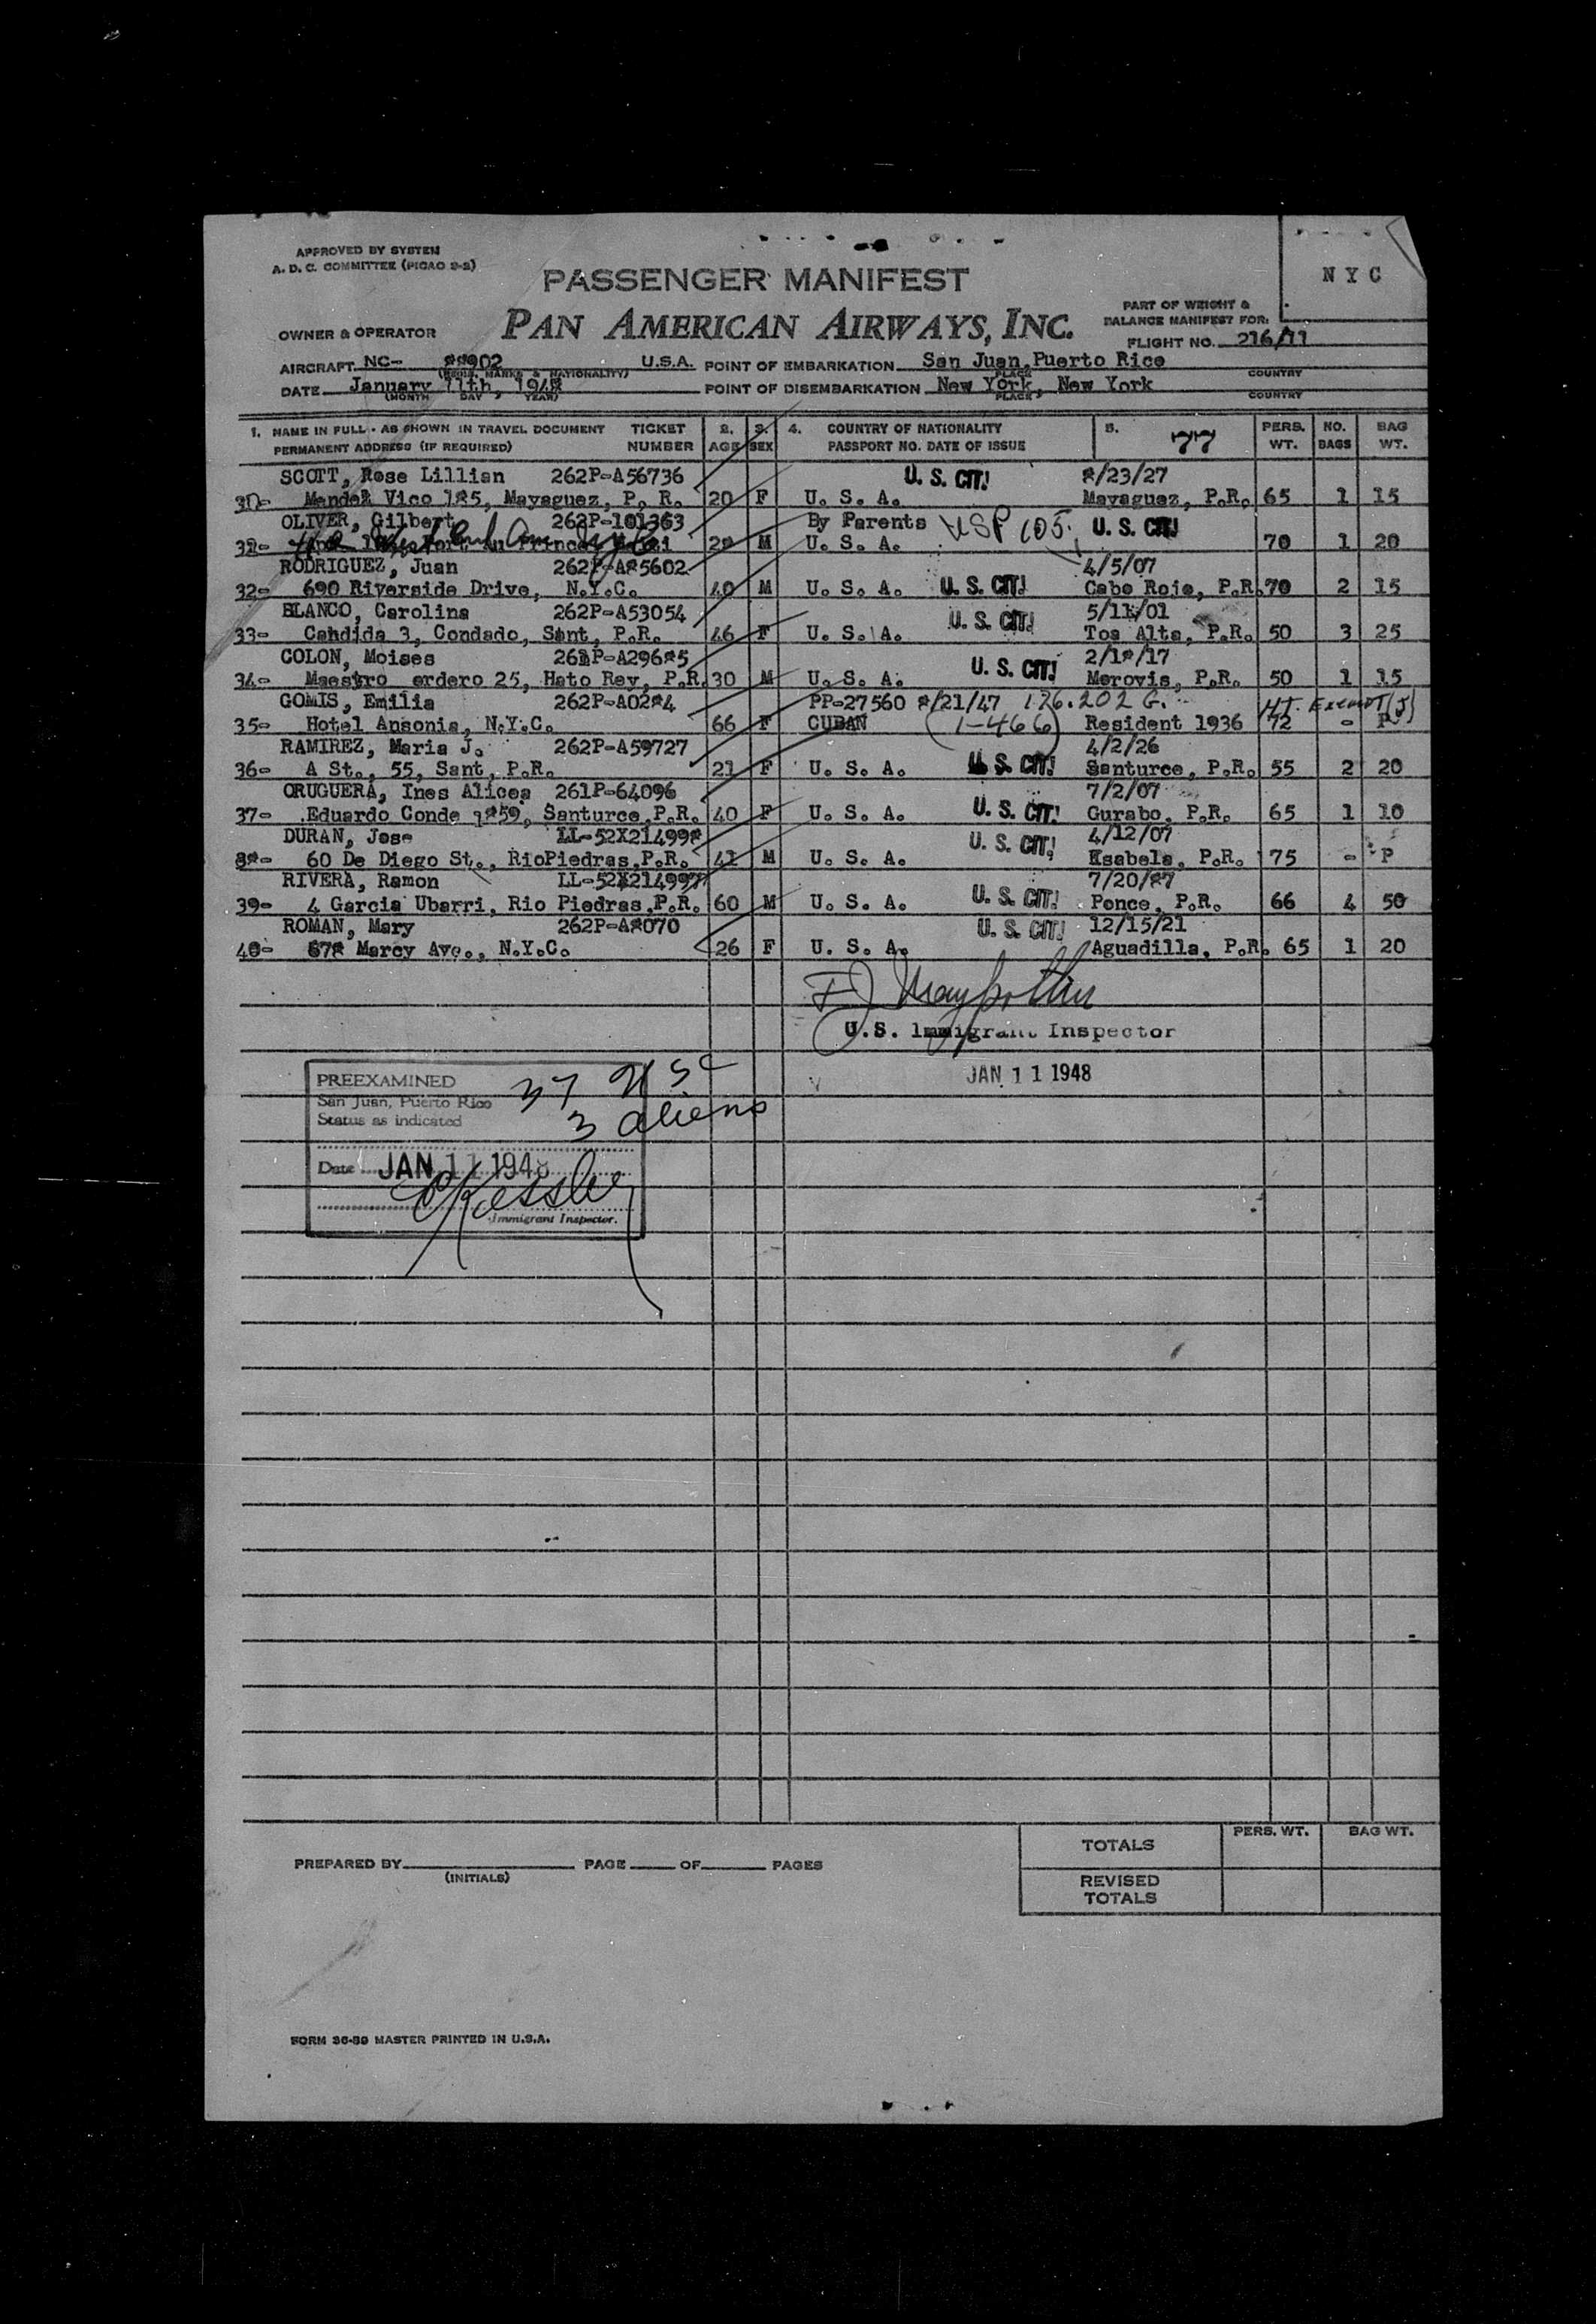 APPROVED BY SYSTEM
A. D. C. COMMITTEE (PICAO 2-2)
N Y C
PASSENGER MANIFEST
PAN AMERICAN AIRWAYS, INC.
PART OF WEIGHT &
BALANCE MANIFEST FOR:
OWNER & OPERATOR
FLIGHT NO. 216/11
AIRCRAFT NC- 88902 U.S.A. POINT OF EMBARKATION San Juan, Puerto Rico
(REGIS. MARKS & NATIONALITY) PLACE COUNTRY
DATE January 11th, 1948 POINT OF DISEMBARKATION New York, New York
(MONTH DAY YEAR) PLACE COUNTRY
1. NAME IN FULL - AS SHOWN IN TRAVEL DOCUMENT TICKET 2. 3. 4. COUNTRY OF NATIONALITY 5. 77 PERS. NO. BAG
PERMANENT ADDRESS (IF REQUIRED) NUMBER AGE SEX PASSPORT NO. DATE OF ISSUE WT. BAGS WT.
SCOTT, Rose Lillian 262P-A56736 U. S. CIT! 8/23/27
30- Mendez Vico 185, Mayaguez, P. R. 20 F U. S. A. Mayaguez, P.R. 65 1 15
OLIVER, Gilbert 262P-101363 By Parents USP 105. U. S. CIT!
M U. S. A. 70 1 20
RODRIGUEZ, Juan 262P-A85602 4/5/07
32- 690 Riverside Drive, N.Y.C. 40 M U. S. A. U. S. CIT! Cabo Rojo, P.R. 70 2 15
BLANCO, Carolina 262P-A53054 5/11/01
33- Candida 3, Condado, Sant, P.R. 46 F U. S. A. U. S. CIT! Toa Alta, P.R. 50 3 25
COLON, Moises 262P-A29685 2/18/17
34- Maestro erdero 25, Hato Rey, P.R. 30 M U. S. A. U. S. CIT! Morovis, P.R. 50 1 15
GOMIS, Emilia 262P-A0284 PP-27560 8/21/47 176.202 G. HT. Exempt (J)
35- Hotel Ansonia, N.Y.C. 66 F CUBAN (1-466) Resident 1936 72 - P
RAMIREZ, Maria J. 262P-A59727 4/2/26
36- A St., 55, Sant, P.R. 21 F U. S. A. U. S. CIT! Santurce, P.R. 55 2 20
ORUGUERA, Ines Alicea 261P-64096 7/2/07
37- Eduardo Conde 1859, Santurce, P.R. 40 F U. S. A. U. S. CIT! Gurabo, P.R. 65 1 10
DURAN, Jose LL-52X214998 4/12/07
38- 60 De Diego St., RioPiedras, P.R. 41 M U. S. A. U. S. CIT! Isabela, P.R. 75 - P
RIVERA, Ramon LL-52X214997 7/20/87
39- 4 Garcia Ubarri, Rio Piedras, P.R. 60 M U. S. A. U. S. CIT! Ponce, P.R. 66 4 50
ROMAN, Mary 262P-A8070 12/15/21
40- 678 Marcy Ave., N.Y.C. 26 F U. S. A. U. S. CIT! Aguadilla, P.R. 65 1 20
U.S. Immigrant Inspector
JAN 11 1948
PREEXAMINED 37 USC
San Juan, Puerto Rico
Status as indicated 3 aliens
Date JAN 11 1948
Kessler
Immigrant Inspector.
TOTALS PERS. WT. BAG WT.
PREPARED BY (INITIALS) PAGE OF PAGES
REVISED TOTALS
FORM 36-39 MASTER PRINTED IN U.S.A.